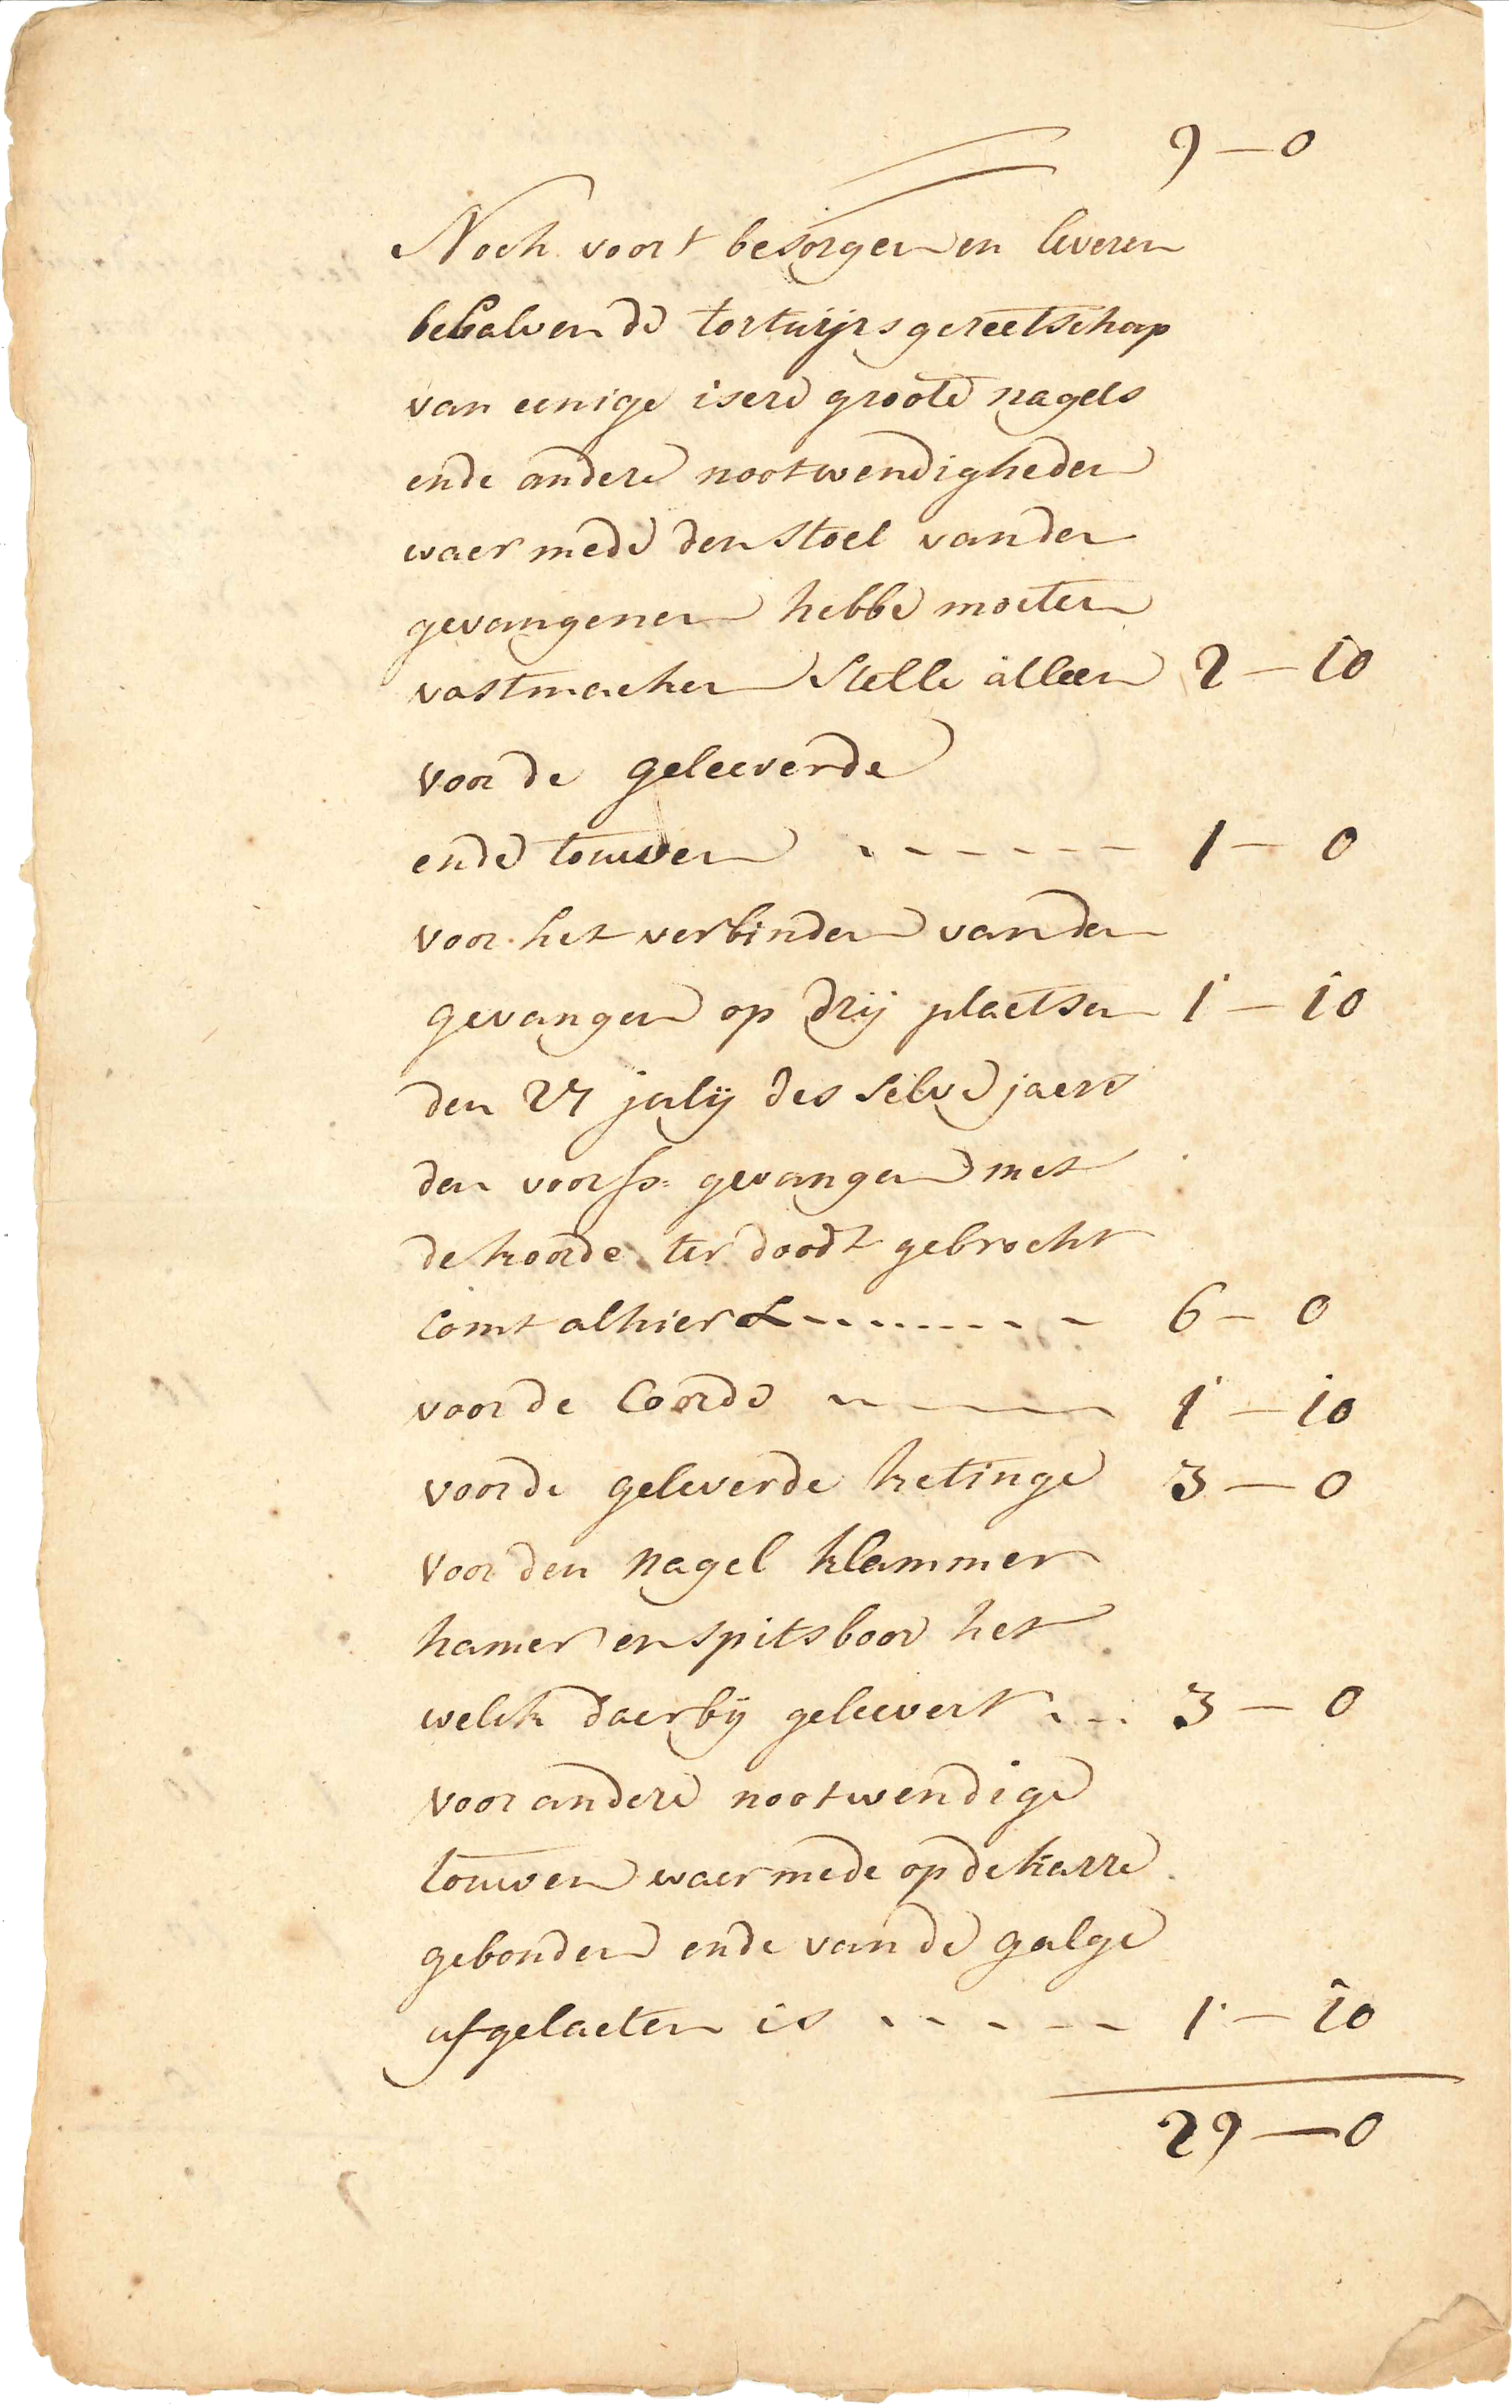 9 — 0
Noch voort besorgen en leveren
behalven de tortuijrs gereetschap
van eenige isere groote nagels
ende andere nootwendigheden
waer mede den stoel van den
gevangenen hebbe moeten
vastmacken stelle alleen 2 — 10
voor de geleeverde
ende touwen - - - - - - 1 — 0
voor het verbinden van den
gevangen op drij plaetsen 1 — 10
den 27 julij des selve jaers
den voors: gevangen met
de koorde ter doodt gebrocht
comt alhier - - - - - - - 6 — 0
voor de coorde - - - - 1 — 10
voor de geleverde ketinge 3 — 0
voor den nagel klammer
hamer en spitsboor het
welck daerbij geleevert - - - 3 — 0
voor andere nootwendige
touwen waermede op de karre
gebonden ende van de galge
afgelaeten is - - - - - 1 — 10
29 — 0